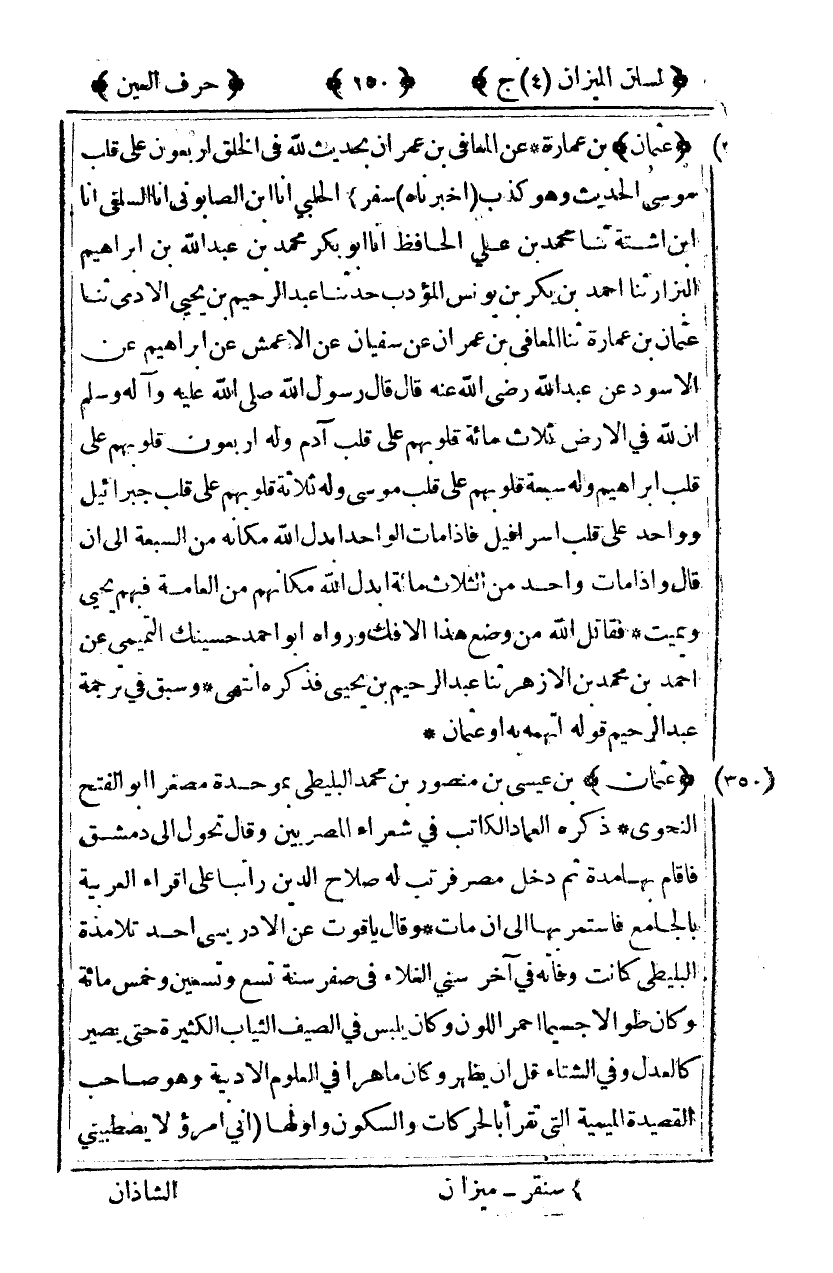 ﴿ لسان الميزان (٤) ج ﴾ ﴿ ١٥٠ ﴾ ﴿ حرف العين ﴾
﴿ عثمان ﴾ بن عمارة * عن المعافى بن عمران بحديث لله فى الخلق اربعون على قلب
موسى الحديث وهو كذب (اخبرناه) سفر } الحلبي انا ابن الصابونى انا السلفى انا
ابن اشتة ثنا محمد بن علي الحافظ انا ابو بكر محمد بن عبد الله بن ابراهيم
البزار ثنا احمد بن بكر بن يونس المؤدب حدثنا عبد الرحيم بن يحيى الادمى ثنا
عثمان بن عمارة ثنا المعافى بن عمران عن سفيان عن الاعمش عن ابراهيم عن
الاسود عن عبد الله رضى الله عنه قال قال رسول الله صلى الله عليه وآله وسلم
ان لله في الارض ثلاث مائة قلوبهم على قلب آدم وله اربعون قلوبهم على
قلب ابراهيم وله سبعة قلوبهم على قلب موسى وله ثلاثة قلوبهم على قلب جبرائيل
وواحد على قلب اسرافيل فاذا مات الواحد ابدل الله مكانه من السبعة الى ان
قال واذا مات واحد من الثلاث مائة ابدل الله مكانهم من العامة فبهم يحيى
ويميت * فقاتل الله من وضع هذا الافك ورواه ابو احمد حسينك التميمى عن
احمد بن محمد بن الازهر ثنا عبد الرحيم بن يحيى فذكره انتهى * وسبق في ترجمة
عبد الرحيم قوله اتهمه به او عثمان *
(٣٥٠) ﴿ عثمان ﴾ بن عيسى بن منصور بن محمد البليطى بموحدة مصغرا ابو الفتح
النحوى * ذكره العماد الكاتب في شعراء المصريين وقال تحول الى دمشق
فاقام بها مدة ثم دخل مصر فرتب له صلاح الدين راتبا على اقراء العربية
بالجامع فاستمر بها الى ان مات * وقال ياقوت عن الادريسى احد تلامذة
البليطى كانت وفاته في آخر سني الغلاء فى صفر سنة تسع وتسعين وخمس مائة
وكان طوالا جسيما احمر اللون وكان يلبس في الصيف الثياب الكثيرة حتى يصير
كالعدل وفي الشتاء قل ان يظهر وكان ماهرا في العلوم الادبية وهو صاحب
القصيدة الميمية التى تقرأ بالحركات والسكون واولها (اني امرؤ لا يصطبيني
} سنقر ــ ميزان الشاذان